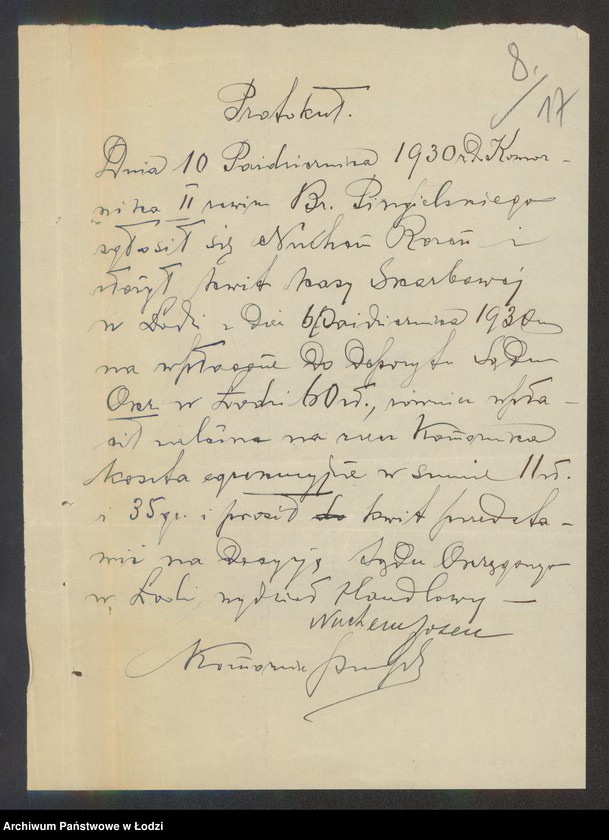 8.
17
Protokuł.
Dnia 10 Października 1930 r. Do Komor-
nika II rewiru Br. Pingielskiego
zgłosił się Nuchem i
złożył kwit kasy Skarbowej
w Łodzi z dnia 6 Października 1930 r.
na wpłacone do depozytu Sądu
Okr. w Łodzi 60 zł., również wpła-
cił na ręce Komornika
koszta egzekucyjne w sumie 11 zł.
i 35 gr. i prosił kwit przedsta-
wić na decyzję Sądu Okręgowego
w Łodzi, wydział Handlowy —
Nuchem
Komornik
Archiwum Państwowe w Łodzi